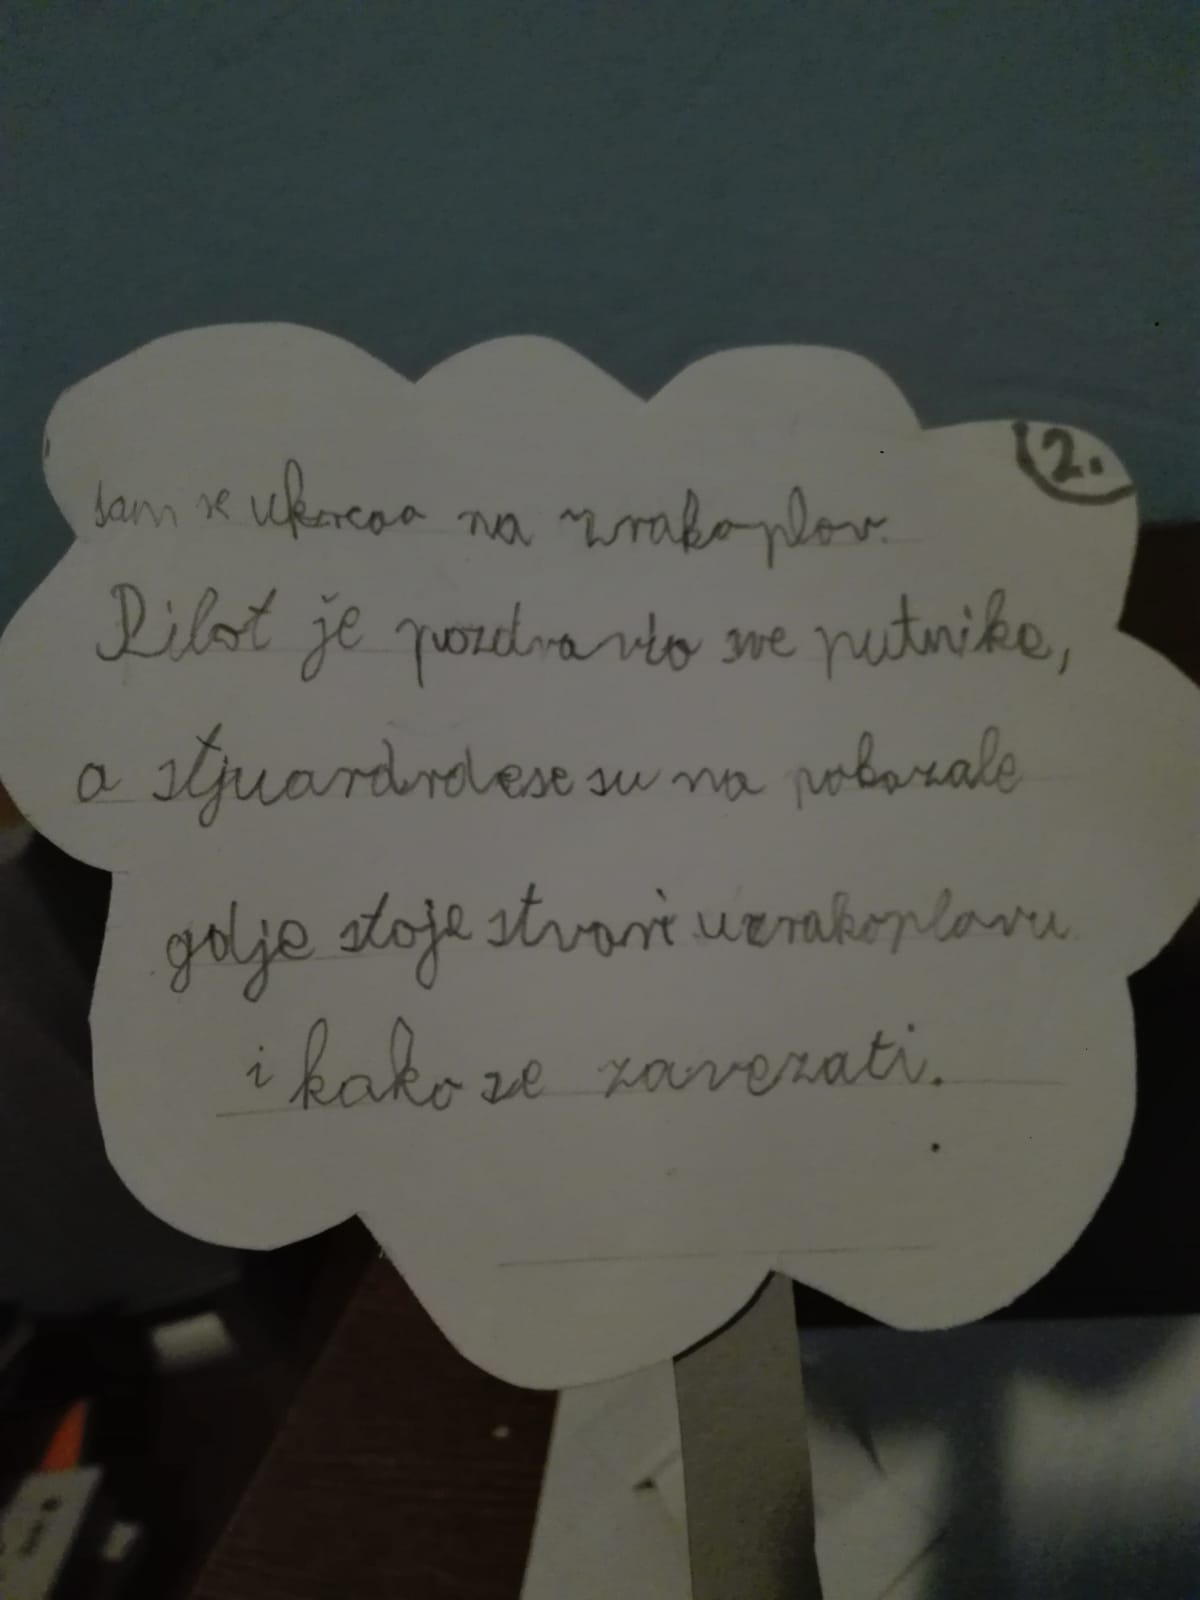 2.
sam se ukrcao na zrakoplov.
Pilot je pozdravio sve putnike,
a stjuardrdese su na pokazale
gdje stoje stvari u zrakoplovu
i kako se zavezati.